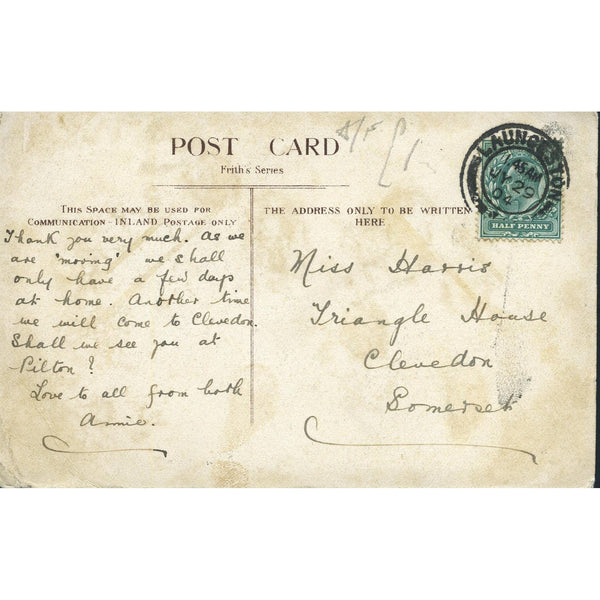 POST CARD
Frith's Series
A/F
THIS SPACE MAY BE USED FOR
COMMUNICATION - INLAND POSTAGE ONLY
THE ADDRESS ONLY TO BE WRITTEN
HERE
LAUNCESTON
20
HALF PENNY
Thank you very much. As we
are 'moving' we shall
only have a few days
at home. Another time
we will come to Clevedon.
Shall we see you at
Pilton?
Love to all from both
Annie.
Miss Harris
Triangle House
Clevedon
Somerset